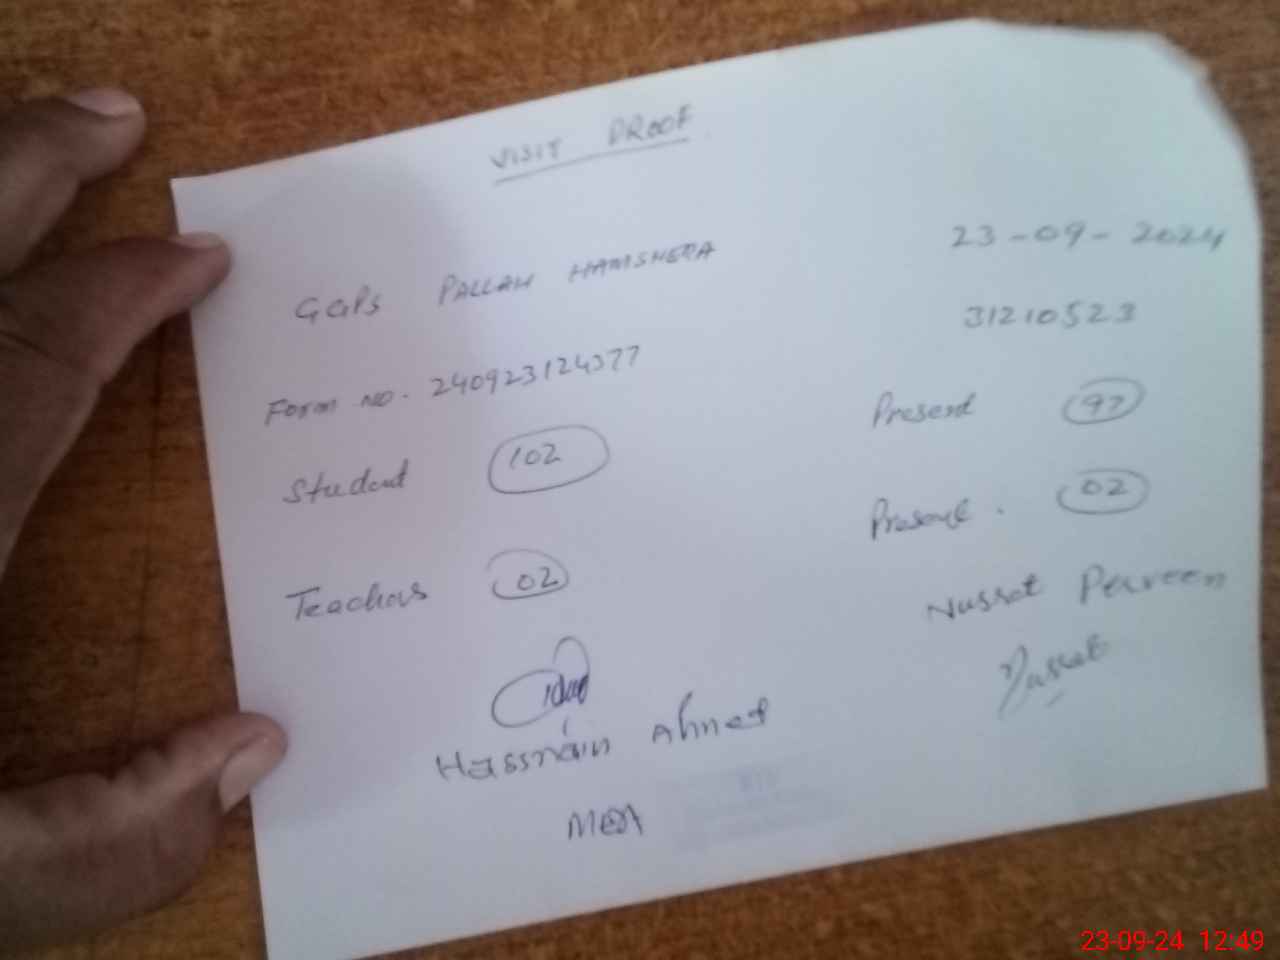 VISIT PROOF
23-09-2024
GGPS PALLAH HAMSHERA
31210523
Form NO. 240923124377
Present 97
Student 102
Present. 02
Teachers 02
Nusrat Perveen
Nusrat
Hassnain Ahmed
MEA
23-09-24 12:49